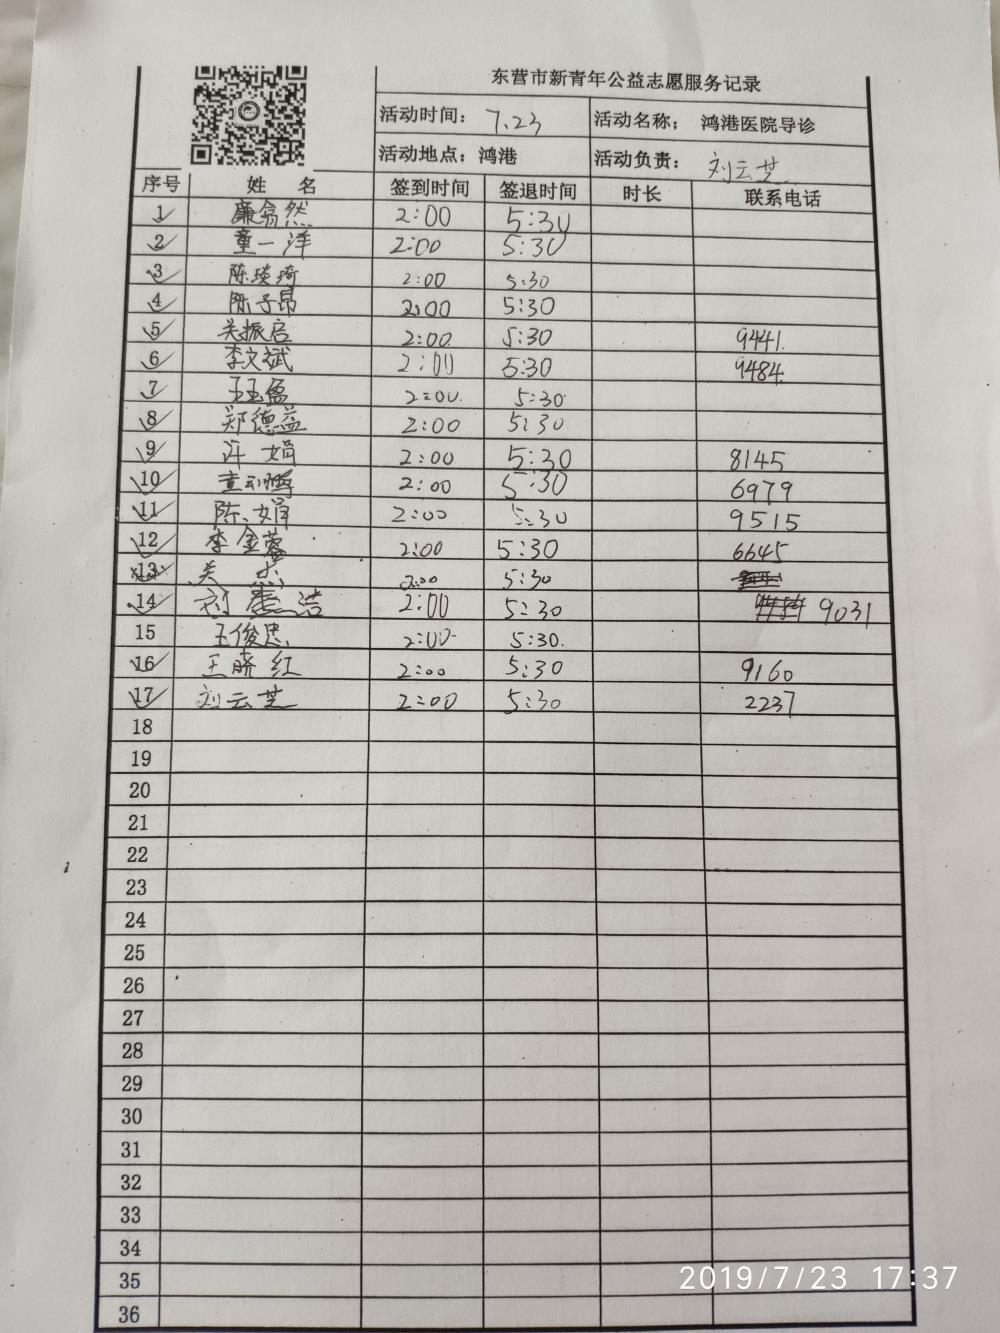 东营市新青年公益志愿服务记录
活动时间： 7.23 活动名称； 鸿港医院导诊
活动地点：鸿港 活动负责： 刘云芝
序号 姓 名 签到时间 签退时间 时长 联系电话
1 廉翕然 2:00 5:30
2 董一洋 2:00 5:30
3 陈琰琦 2:00 5:30
4 陈子昂 2:00 5:30
5 关振启 2:00 5:30 9441.
6 李文斌 2:00 5:30 9484.
7 王玉盈 2:00. 5:30
8 郑德益 2:00 5:30
9 许娟 2:00 5:30 8145
10 2:00 5:30 6979
11 陈娟 2:00 5:30 9515
12 李金蓉 2:00 5:30 6645
13 2:00 5:30
14 刘 浩 2:00 5:30 9031
15 王俊忠 2:00 5:30.
16 王晓红 2:00 5:30 9160
17 刘云芝 2:00 5:30 2237
18
19
20
21
22
23
24
25
26
27
28
29
30
31
32
33
34
35
36
2019/7/23 17:37